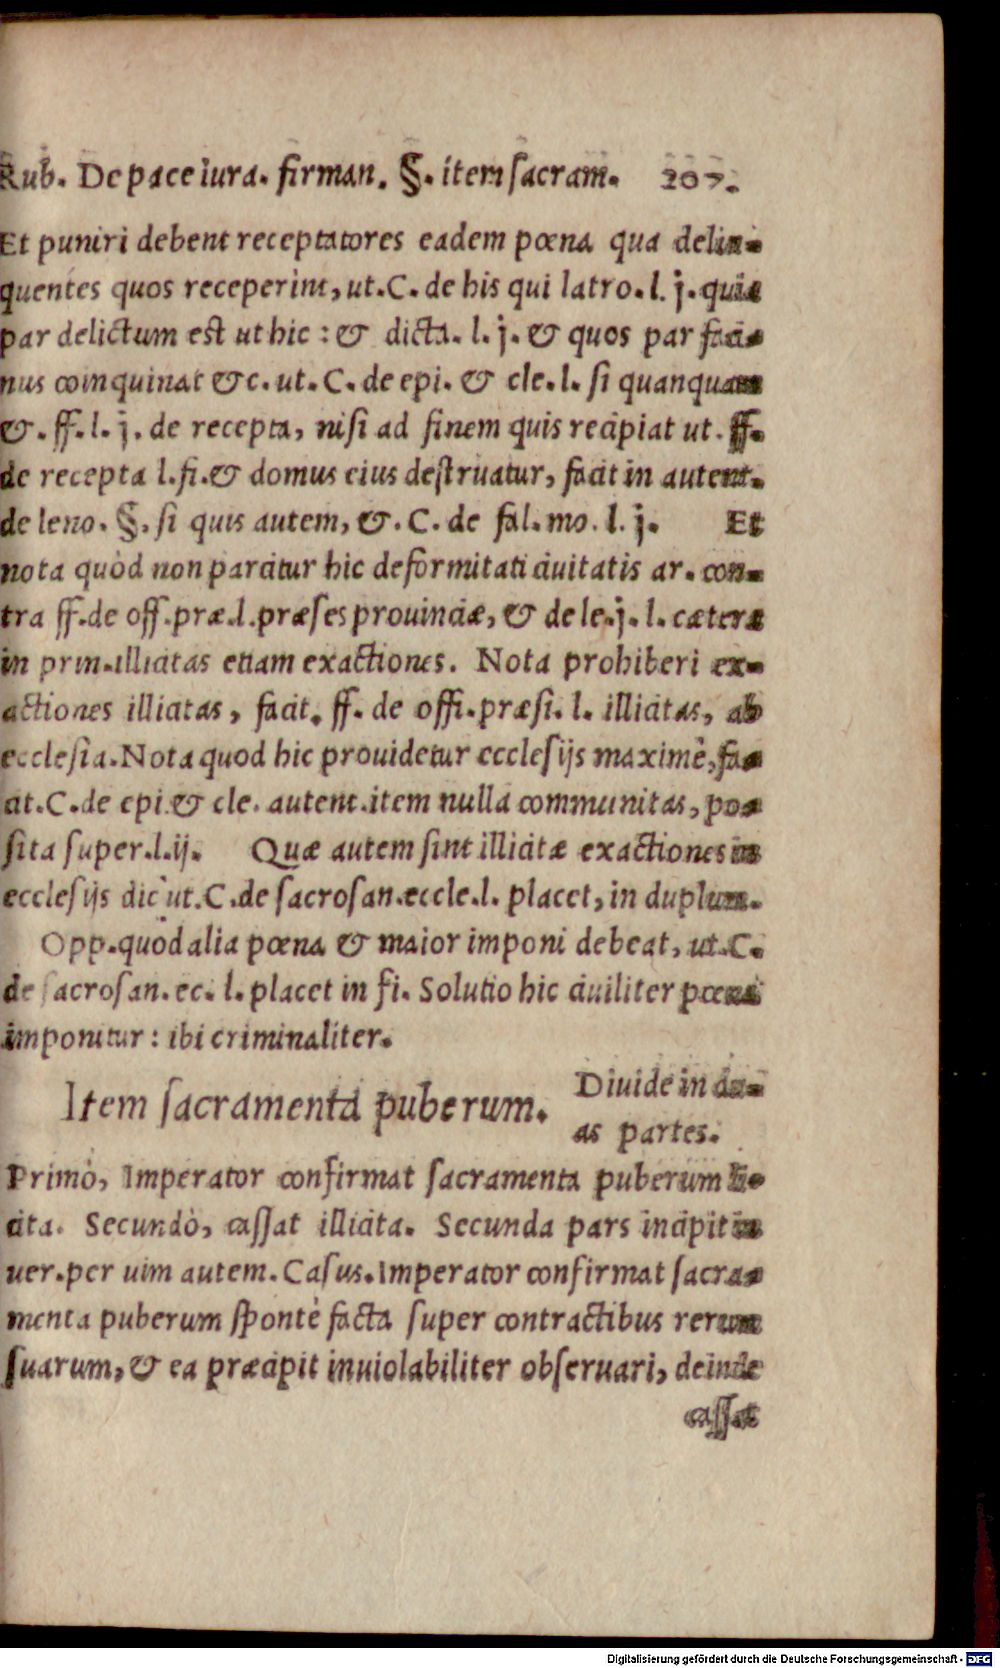 Rub. De pace iura. firman. §. item sacram. 207.
Et puniri debent receptatores eadem pœna qua delin-
quentes quos receperint, ut. C. de his qui latro. l. j. quia
par delictum est ut hic : & dicta. l. j. & quos par faci-
nus coinquinat &c. ut. C. de epi. & cle. l. si quanquam
&. ff. l. j. de recepta, nisi ad finem quis recipiat ut. ff.
de recepta l. fi. & domus eius destruatur, facit in autent.
de leno. §. si quis autem, &. C. de fal. mo. l. j. Et
nota quòd non parcitur hic deformitati ciuitatis ar. con-
tra ff. de off. præ. l. præses prouinciæ, & de le. j. l. cætera
in prin. illicitas etiam exactiones. Nota prohiberi ex-
actiones illicitas, facit. ff. de offi. præsi. l. illicitas, ab
ecclesia. Nota quod hic prouidetur ecclesijs maximè, fa-
cit. C. de epi. & cle. autent. item nulla communitas, po-
sita super. l. ij. Quæ autem sint illicitæ exactiones in
ecclesijs dic ut. C. de sacrosan. eccle. l. placet, in duplum.
Opp. quòd alia pœna & maior imponi debeat, ut. C.
de sacrosan. ec. l. placet in fi. Solutio hic ciuiliter pœna
imponitur : ibi criminaliter.
Item sacramenta puberum. Diuide in du-
as partes.
Primò, Imperator confirmat sacramenta puberum li-
cita. Secundò, cassat illicita. Secunda pars incipit in
uer. per uim autem. Casus. Imperator confirmat sacra-
menta puberum spontè facta super contractibus rerum
suarum, & ea præcipit inuiolabiliter obseruari, deinde
cassat
Digitalisierung gefördert durch die Deutsche Forschungsgemeinschaft - DFG